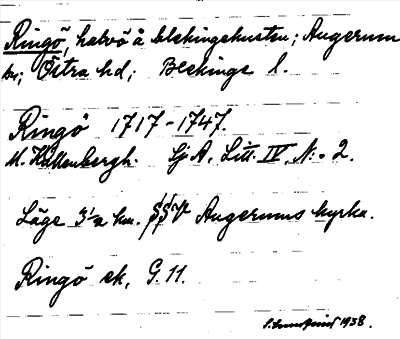 Ringö, halvö å Blekingekusten; Augerum
sn; Östra hd; Blekinge l.
Ringö 1717-1747.
M. Kallenbergh. Lj A. Litt. IV. N:o 2.
Läge 3 1/2 km. SSV Augerums kyrka.
Ringö ek. G. 11.
1938.